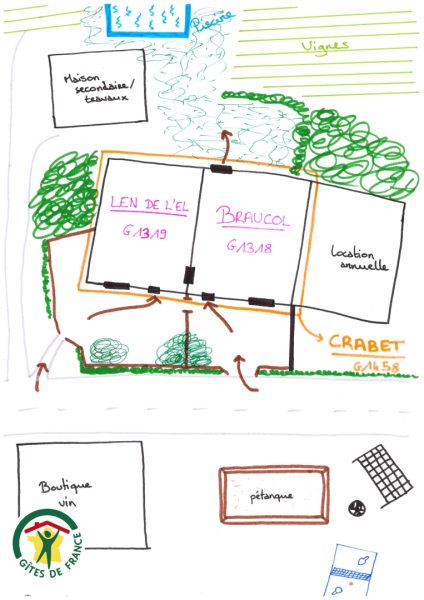 Piscine
Vignes
Maison
secondaire/
travaux
LEN DE L'EL
G1319
BRAUCOL
G1318
Location
annuelle
CRABET
G1458
Boutique
vin
pétanque
GÎTES DE FRANCE